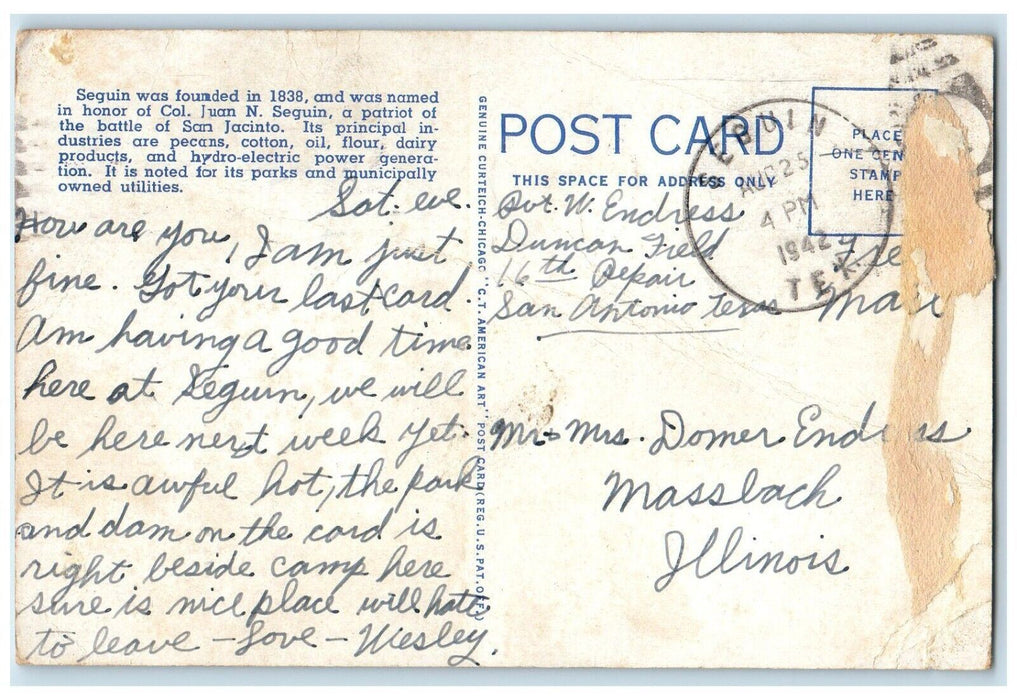 Seguin was founded in 1838, and was named
in honor of Col. Juan N. Seguin, a patriot of
the battle of San Jacinto. Its principal in-
dustries are pecans, cotton, oil, flour, dairy
products, and hydro-electric power genera-
tion. It is noted for its parks and municipally
owned utilities.
Sat. eve.
How are you, I am just
fine. Got your last card.
Am having a good time
here at Seguin, we will
be here next week yet.
It is awful hot, the park
and dam on the card is
right beside camp here
sure is nice place will hate
to leave – Love – Wesley.
GENUINE CURTEICH-CHICAGO "C.T. AMERICAN ART" POST CARD (REG. U.S. PAT. OFF.)
POST CARD
THIS SPACE FOR ADDRESS ONLY
PLACE
ONE CEN
STAMP
HERE
SEGUIN
AUG 25
4 PM
1942
TEX.
Pvt. W. Endress
Duncan Field
16th Repair
San Antonio Texas
Free
Mail
Mr + Mrs. Domer Endress
Massbach
Illinois